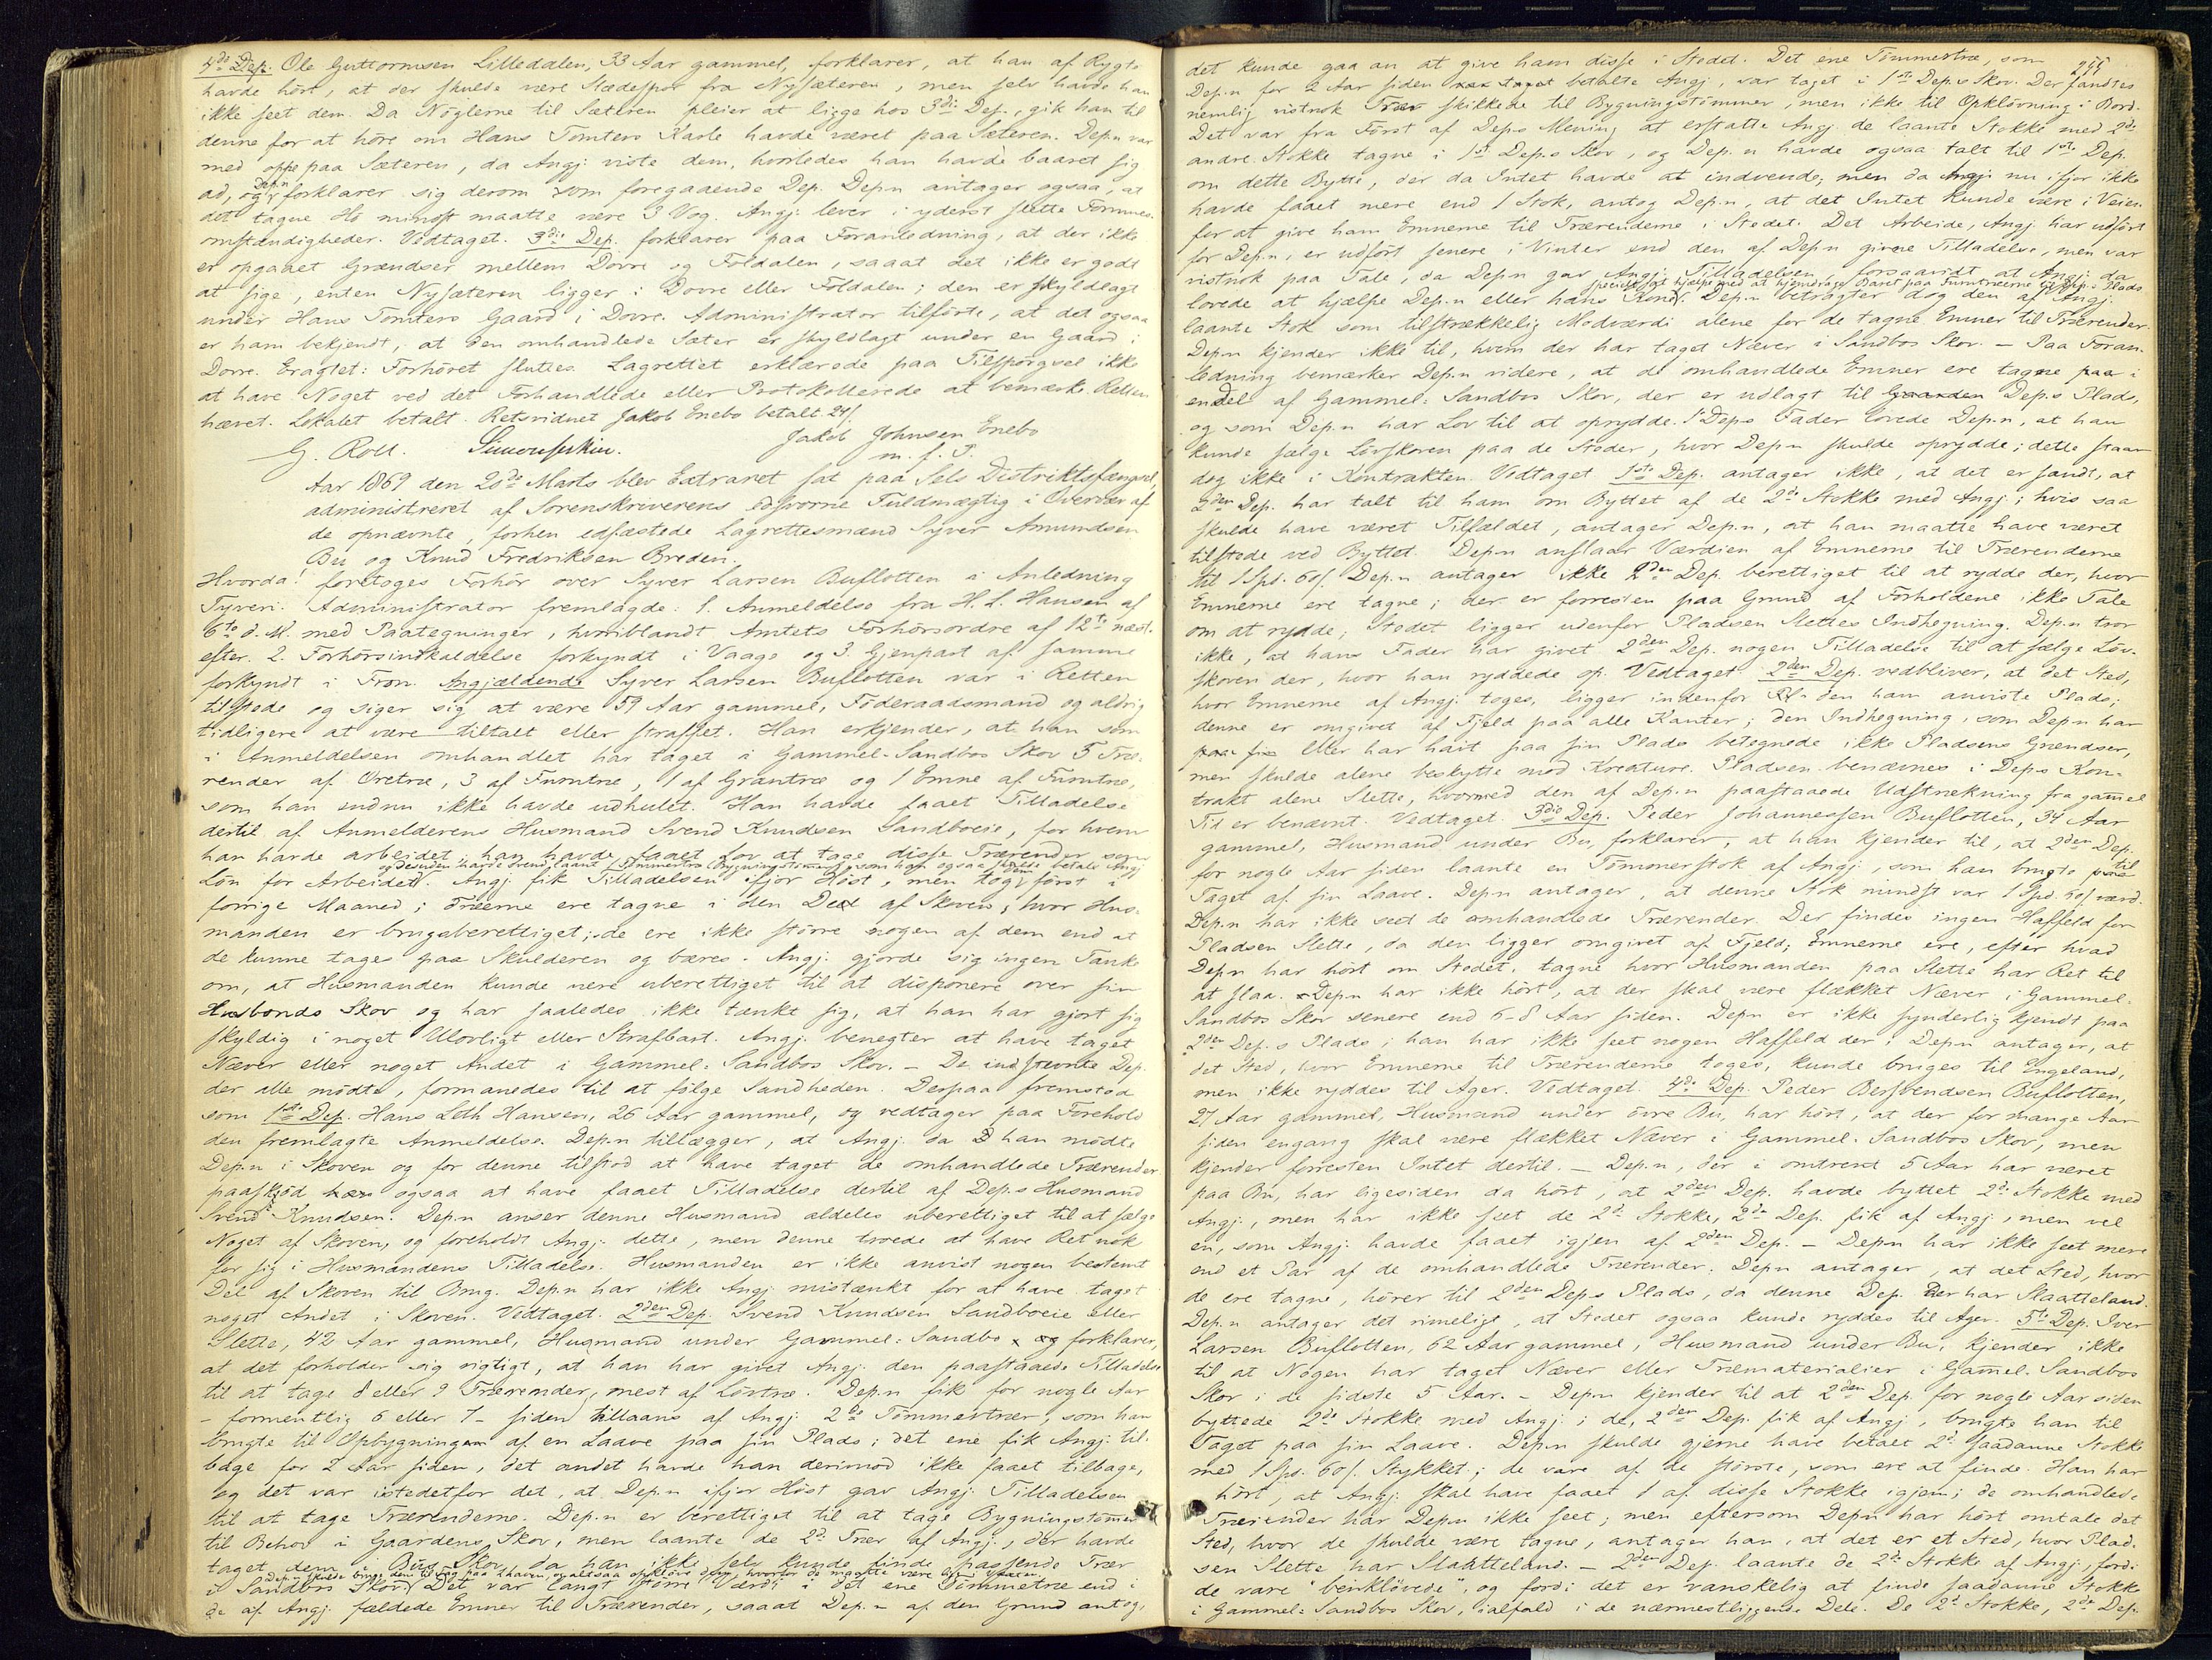 4de Dep. Ole Guttormsen Lilledalen, 33 Aar gammel, forklarer, at han af Rygte
havde hört, at der skulde være Slædespor fra Nysæteren, men selv havde han
ikke seet dem. Da Nöglerne til Sæteren pleier at ligge hos 3die Dep., gik han til
denne for at höre om Hans Tomters Karle havde været paa Sæteren. Dep.n var
med oppe paa Sæteren, da Angj. viste dem, hvorledes han havde baaret sig
ad, og Dep.n forklarer sig derom som foregaaende Dep. Dep.n antager ogsaa, at
det tagne Hö mindst maatte være 3 Vog. Angj. lever i yderst slette Formues-
omstændigheder. Vedtaget. 3die Dep. forklarer paa Foranledning, at der ikke
er opgaaet Grændser mellem Dovre og Foldalen, saaat det ikke er godt
at sige, enten Nysæteren ligger i Dovre eller Foldalen; den er skyldlagt
under Hans Tomters Gaard i Dovre. Administrator tilförte, at det ogsaa
er ham bekjendt, at den omhandlede Sæter er skyldlagt under en Gaard i
Dovre. Eragtet: Forhöret sluttes. Lagrettet erklærede paa Tilspörgsel ikke
at have Noget ved det Forhandlede eller Protokollerede at bemærke. Retten
hævet. Lokalet betalt. Retsvidnet Jakob Enebo betalt 24 s.
G. Roll. Jakob Johnsen Enebo
m. f. P.
Aar 1869 den 20de Marts blev Extraret sat paa Sels Distriktsfængsel,
administreret af Sorenskriverens edsvorne Fuldmægtig i Overvær af
de opnævnte, forhen edfæstede Lagrettesmænd Syver Amundsen
Bu og Knud Fredriksen Breden.
Hvorda! foretoges Forhör over Syver Larsen Buflotten i Anledning
Tyveri. Administrator fremlagde: 1. Anmeldelse fra H. L. Hansen af
6te d. M. med Paategninger, hvoriblandt Amtets Forhörsordre af 12te næst-
efter. 2. Forhörsindkaldelse forkyndt i Vaage og 3. Gjenpart af samme
forkyndt i Fron. Angjældende Syver Larsen Buflotten var i Retten
tilstede og siger sig at være 59 Aar gammel, Föderaadsmand og aldrig
tidligere at være tiltalt eller straffet. Han erkjender, at han som
i Anmeldelsen omhandlet har taget i Gammel-Sandbos Skov 5 Træ-
render af Oretræ, 3 af Furutræ, 1 af Grantræ og 1 Emne af Furutræ,
som han endnu ikke havde udhulet. Han havde faaet Tilladelse
dertil af Anmelderens Husmand Svend Knudsen Sandboeie, for hvem
han havde arbeidet, han havde faaet Lov at tage disse Trærender som
og desuden havde Svend laant 1 Tömmertræ (Bygningstömmer) som han ogsaa skulde betale Angj.
Lön for Arbeidet. Angj. fik Tilladelsen ifjor Höst, men tog dem först i
forrige Maaned; Træerne ere tagne i den Deel af Skoven, hvor Hus-
manden er brugsberettiget; de ere ikke större nogen af dem end at
de kunne tages paa Skulderen og bæres. Angj. gjorde sig ingen Tanke
om, at Husmanden kunde være uberettiget til at disponere over sin
Husbonds Skov og har saaledes ikke tænkt sig, at han har gjort sig
skyldig i noget Ulovligt eller Strafbart. Angj. benegter at have taget
Næver eller noget Andet i Gammel-Sandbos Skov. — De indstevnte Dep.
der alle mödte, formanedes til at fölge Sandheden. Derpaa fremstod
som 1ste Dep. Hans Leth Hansen, 26 Aar gammel, og vedtager paa Forehold
den fremlagte Anmeldelse. Dep.n tillægger, at Angj. da han mödte
Dep.n i Skoven og for denne tilstod at have taget de omhandlede Trærender
paastod han ogsaa at have faaet Tilladelse dertil af Dep.s Husmand
Svend Knudsen. Dep.n anser denne Husmand aldeles uberettiget til at sælge
Noget af Skoven, og foreholdt Angj. dette, men denne troede at have Ret nok
for sig i Husmandens Tilladelse. Husmanden er ikke anvist nogen bestemt
Del af Skoven til Brug. Dep.n har ikke Angj. mistænkt for at have taget
noget Andet i Skoven. Vedtaget. 2den Dep. Svend Knudsen Sandboeie eller
Slette, 42 Aar gammel, Husmand under Gammel-Sandbo og forklarer,
at det forholder sig rigtigt, at han har givet Angj. den paastaaede Tilladelse
til at tage 8 eller 9 Trærender, mest af Lövtræ. Dep.n fik for nogle Aar
- formentlig 6 eller 7 - siden tillaans af Angj. 2de Tömmertrær, som han
brugte til Opbygningen af en Laave paa sin Plads; det ene fik Angj. til-
bage for 2 Aar siden, det andet havde han derimod ikke faaet tilbage,
og det var istedetfor det, at Dep.n ifjor Höst gav Angj. Tilladelsen
til at tage Trærenderne. Dep.n er berettiget til at tage Bygningstömmer
til Behov i Gaardens Skov, men laante de 2de Trær af Angj., der havde
taget dem i Bus Skov, da han ikke selv kunde finde passende Trær
i Sandbos Skov. Det var langt större Værdi i det ene Tömmertræ end i
de af Angj. fældede Emner til Trærender, saaat Dep.n af den Grund antog,
245
det kunde gaa an at give ham disse i Stedet. Det ene Tömmertræ, som
Dep.n for 2 Aar siden betalte Angj. var taget i 1ste Dep.s Skov. Der fandtes
nemlig vistnok Trær skikkede til Bygningstömmer, men ikke til Opklövning i Bord.
Det var fra Först af Dep.s Mening at erstatte Angj. de laante Stokke med 2de
andre Stokke tagne i 1ste Dep.s Skov, og Dep.n havde ogsaa talt til 1ste Dep.
om dette Bytte, der da Intet havde at indvende; men da Angj. nu ifjor ikke
havde faaet mere end 1 Stok, antog Dep.n, at det Intet kunde være i Veien
for at give ham Emnerne til Trærenderne i Stedet. Det Arbeide, Angj. har udfört
for Dep.n, er udfört senere i Vinter end den af Dep.n givne Tilladelse, men var
vistnok paa Tale, da Dep.n gav Angj. Tilladelsen, forsaavidt at Angj. da
specielt at hjælpe med at hjemdrage Baret paa Furutræerne til Dep.s Plads
lovede at hjælpe Dep.n eller hans Kone. Dep.n betragter dog den af Angj.
laante Stok som tilstrækkelig Modværdi alene for de tagne Emner til Trærender.
Dep.n kjender ikke til, hvem der har taget Næver i Sandbos Skov. — Paa Foran-
ledning bemærker Dep.n videre, at de omhandlede Emner ere tagne i
endel af Gammel-Sandbos Skov, der er udlagt til Dep.s Plads,
og som Dep.n har Lov til at oprydde. 1ste Dep.s Fader lovede Dep.n, at han
kunde sælge Lövskoven paa de Steder, hvor Dep.n skulde oprydde; dette staar
dog ikke i Kontrakten. Vedtaget. 1ste Dep. antager ikke, at det er sandt, at
2den Dep. har talt til ham om Byttet af de 2de Stokke med Angj.; hvis saa
skulde have været Tilfældet, antager Dep.n, at han maatte have været
tilstede ved Byttet. Dep.n anslaar Værdien af Emnerne til Trærenderne
til 1 Spd. 60 s. Dep.n antager ikke 2den Dep. berettiget til at rydde der, hvor
Emnerne ere tagne; der er forresten paa Grund af Forholdene ikke Tale
om at rydde; Stedet ligger udenfor Pladsen Slettes Indhegning. Dep.n tror
ikke, at hans Fader har givet 2den Dep. nogen Tilladelse til at sælge Löv-
skoven der, hvor han ryddede op. Vedtaget. 2den Dep. vedbliver, at det Sted,
hvor Emnerne af Angj. toges, ligger indenfor den ham anviste Plads;
denne er omgivet af Fjeld paa alle Kanter; den Indhegning, som Dep.n har
eller har havt paa sin Plads betegnede ikke Pladsens Grændser,
men skulde alene beskytte mod Kreature. Pladsen benævnes i Dep.s Kon-
trakt alene Slette, hvormed den af Dep.n paastaaede Udstrækning fra gammel
Tid er benævnt. Vedtaget. 3die Dep. Peder Johannessen Buflotten, 34 Aar
gammel, Husmand under Bu, forklarer, at han kjender til, at 2den Dep.
for nogle Aar siden laante en Tömmerstok af Angj., som han brugte til
Taget af sin Laave. Dep.n antager, at denne Stok mindst var 1 Spd. 60 s. værd.
Dep.n har ikke seet de omhandlede Trærender. Der findes ingen Haffeld for
Pladsen Slette, da den ligger omgivet af Fjeld; Emnerne ere, efter hvad
Dep.n har hört om Stedet, tagne hvor Husmanden paa Slette har Ret til
at slaa. Dep.n har ikke hört, at der skal være flækket Næver i Gammel-
Sandbos Skov senere end 6-8 Aar siden. Dep.n er ikke synderlig kjendt paa
2den Dep.s Plads; han har ikke seet nogen Haffeld der; Dep.n antager, at
det Sted, hvor Emnerne til Trærenderne toges, kunde bruges til Engeland,
men ikke ryddes til Ager. Vedtaget. 4de Dep. Peder Bersvendsen Buflotten,
27 Aar gammel, Husmand under övre Bu, har hört, at der for mange Aar
siden engang skal være flækket Næver i Gammel-Sandbos Skov, men
kjender forresten Intet dertil. — Dep.n, der i omtrent 5 Aar har været
paa Bu, har ligesiden da hört, at 2den Dep. havde byttet 2de Stokke med
Angj., men har ikke seet de 2de Stokke, 2den Dep. fik af Angj., men vel
en, som Angj. havde faaet igjen af 2den Dep. — Dep.n har ikke seet mere
end et Par af de omhandlede Trærender. Dep.n antager, at det Sted, hvor
de ere tagne, hörer til 2den Dep.s Plads, da denne Dep. der har Slaatteland.
Dep.n antager det rimeligt, at Stedet ogsaa kunde ryddes til Ager. 5te Dep. Iver
Larsen Buflotten, 62 Aar gammel, Husmand under Bu, kjender ikke
til at Nogen har taget Næver eller Træmaterialier i Gammel-Sandbos
Skov i de sidste 5 Aar. — Dep.n kjender til at 2den Dep. for nogle Aar siden
byttede 2de Stokke med Angj.; de, 2den Dep. fik af Angj., brugte han til
Taget paa sin Laave. Dep.n skulde gjerne have betalt 2de saadanne Stokke
med 1 Spd. 60 s. Stykket; de vare af de störste, som ere at finde. Han har
hört, at Angj. skal have faaet 1 af disse Stokke igjen; de omhandlede
Trærender har Dep.n ikke seet; men eftersom Dep.n har hört omtale det
Sted, hvor de skulde være tagne, antager han, at det er et Sted, hvor Plad-
sen Slette har Slaatteland. — 2den Dep. laante de 2de Stokke af Angj., fordi
de vare "beinklövede", og fordi det er vanskelig at finde saadanne Stokke
i Gammel-Sandbos Skov, ialfald i de nærmestliggende Dele. De 2de Stokke, 2den Dep.